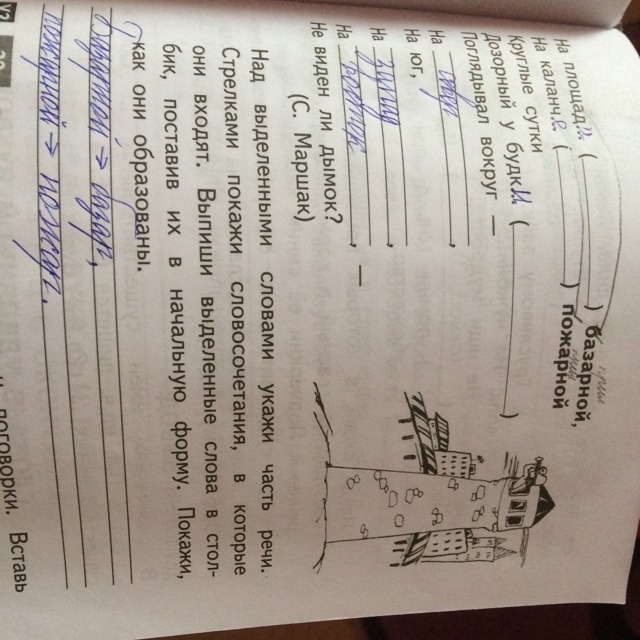 На площади (            ) базарной,
прил
На каланче (            ) пожарной
Круглые сутки
Дозорный у будки (            )
Поглядывал вокруг —
На север,
На юг,
На запад,
На восток, —
Не виден ли дымок?
(С. Маршак)
Над выделенными словами укажи часть речи.
Стрелками покажи словосочетания, в которые
они входят. Выпиши выделенные слова в стол-
бик, поставив их в начальную форму. Покажи,
как они образованы.
→ базар,
пожарной → пожар.
поговорки. Вставь
У2